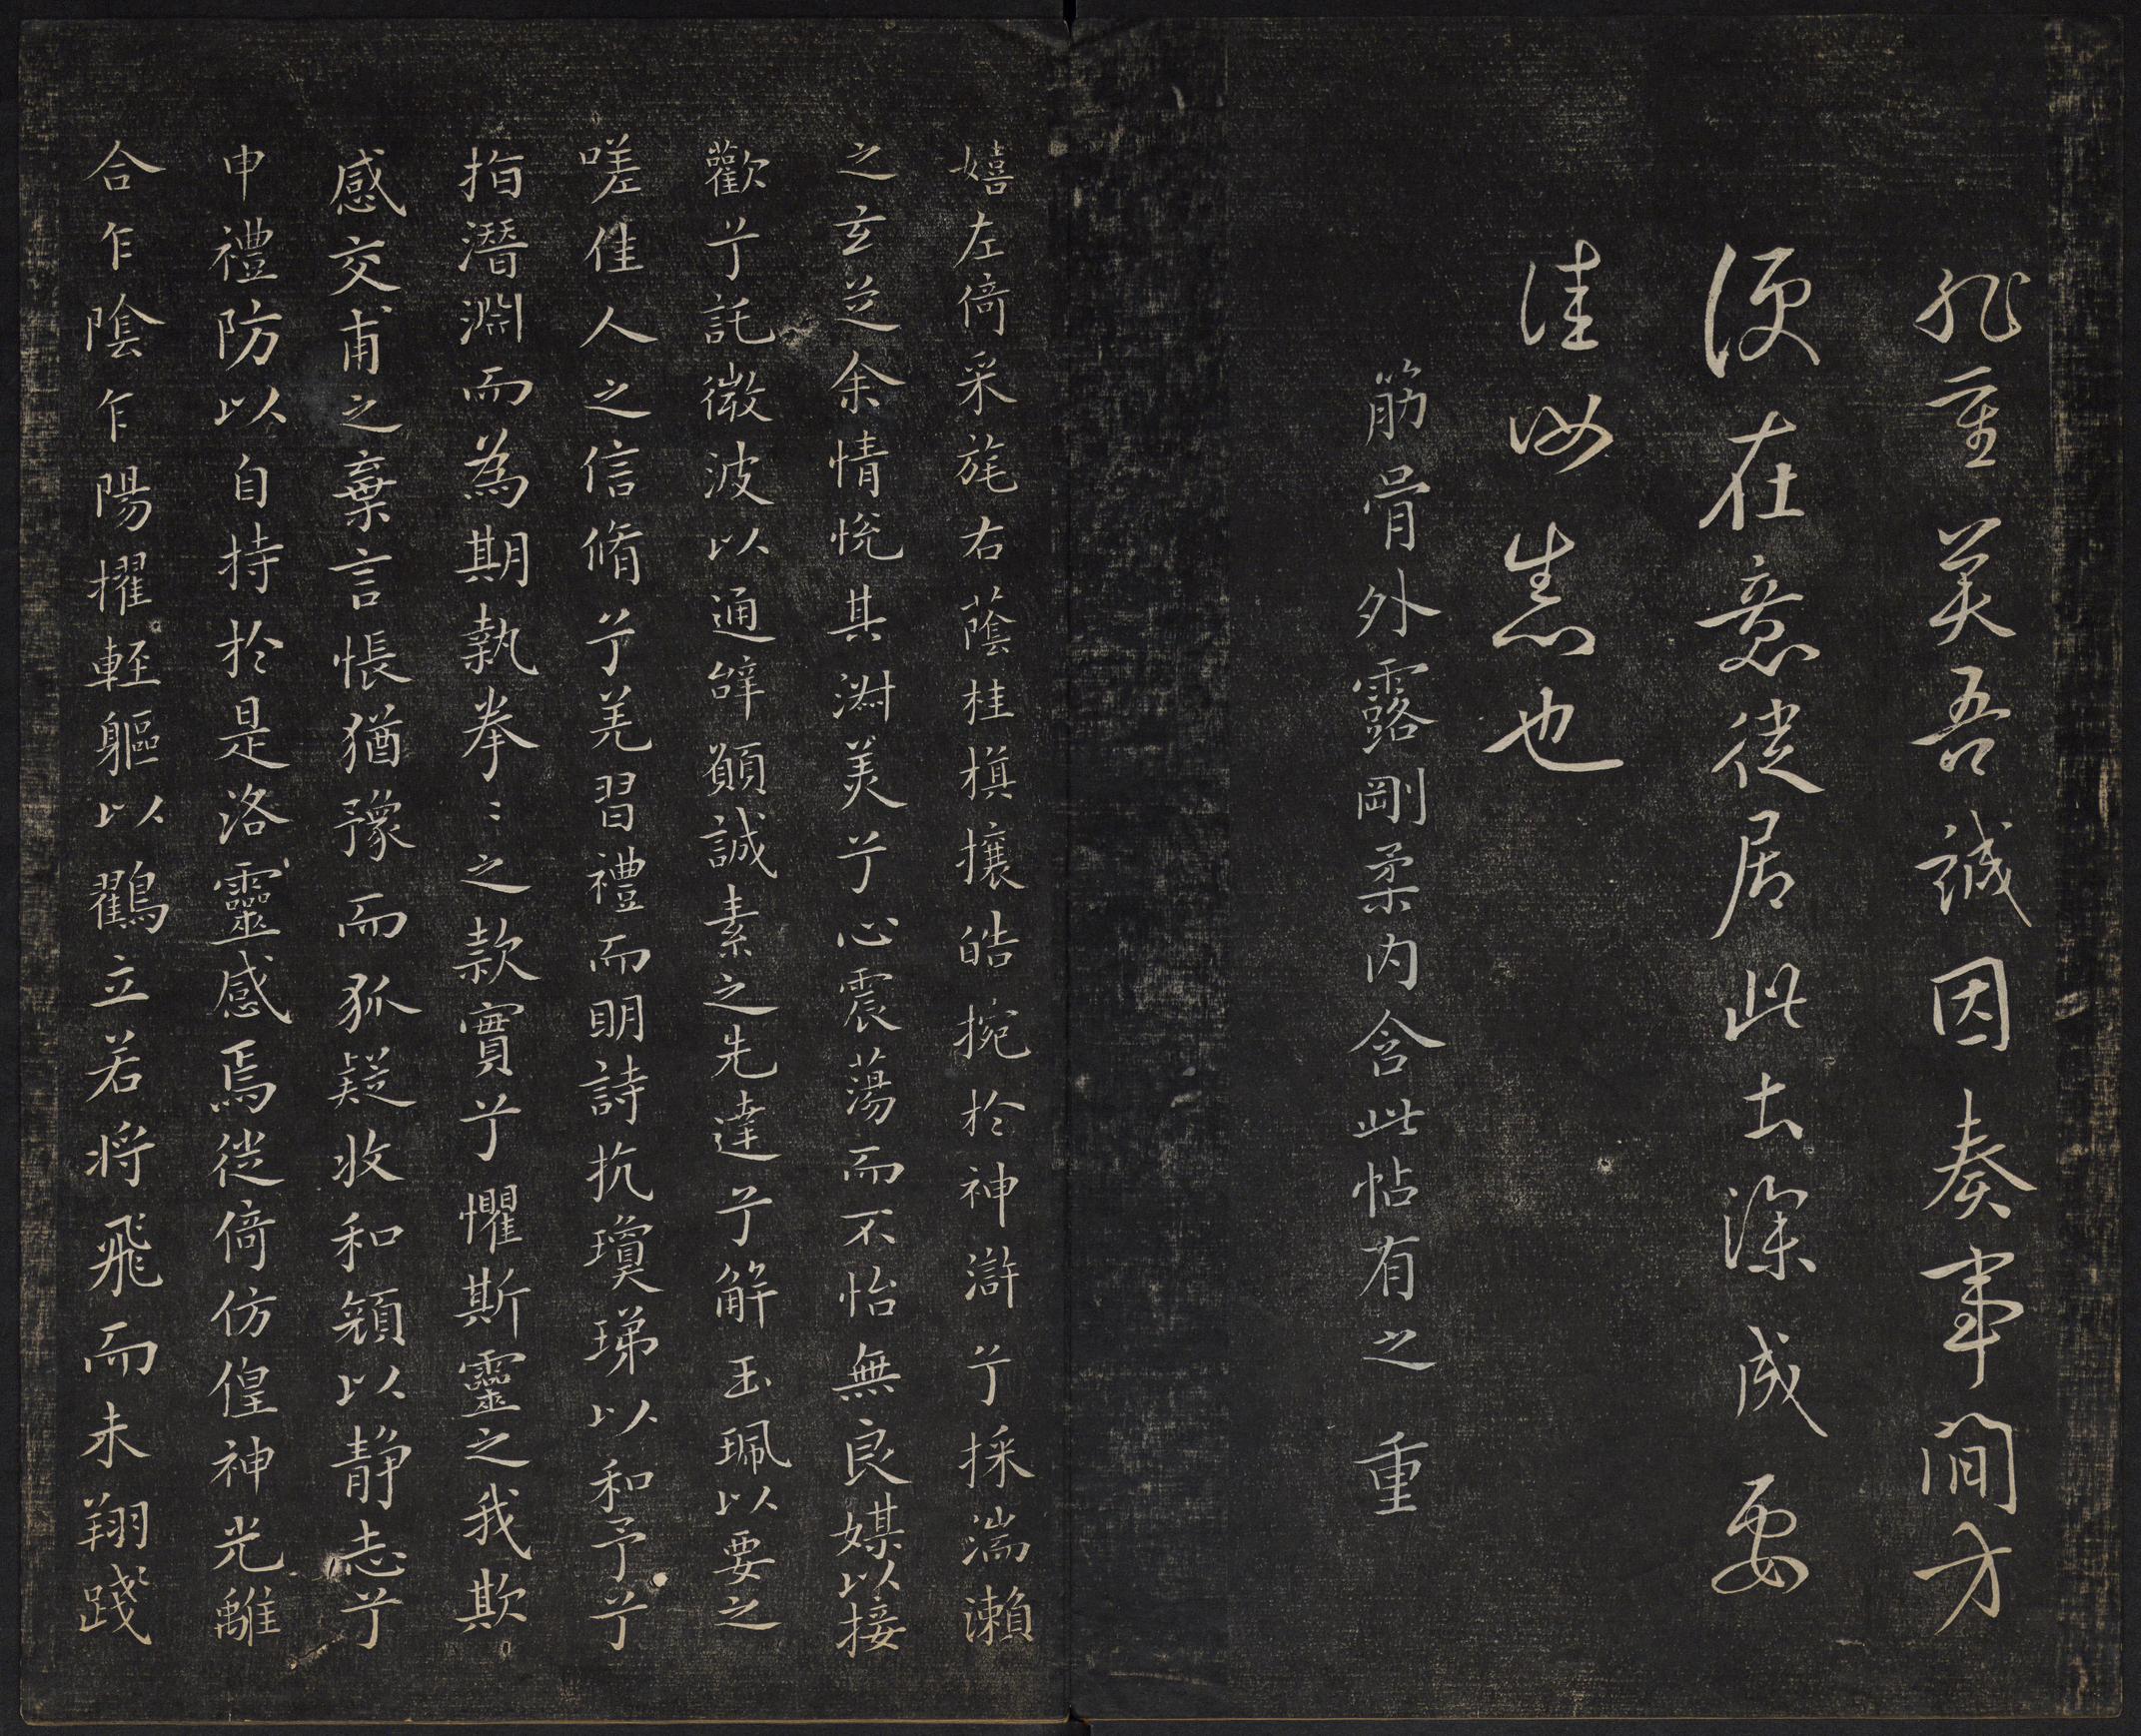 非重答吾誠因奏事間方
便在意從居此去深成要
佳必慕也
筋骨外露剛柔内含此帖有之 重
嬉左倚采旄右蔭桂旗攘皓捥於神滸兮採湍瀨
之玄芝余情悅其淑美兮心震蕩而不怡無良媒以接
歡兮託微波以通辝願誠素之先達兮解玉珮以要之
嗟佳人之信脩兮羌習禮而明詩抗瓊珶以和予兮
指潛淵而為期執拳〻之款實兮懼斯靈之我欺
感交甫之棄言悵猶豫而狐疑收和顏以靜志兮
申禮防以自持於是洛靈感焉從倚仿偟神光離
合乍陰乍陽擢輕軀以鶴立若將飛而未翔踐